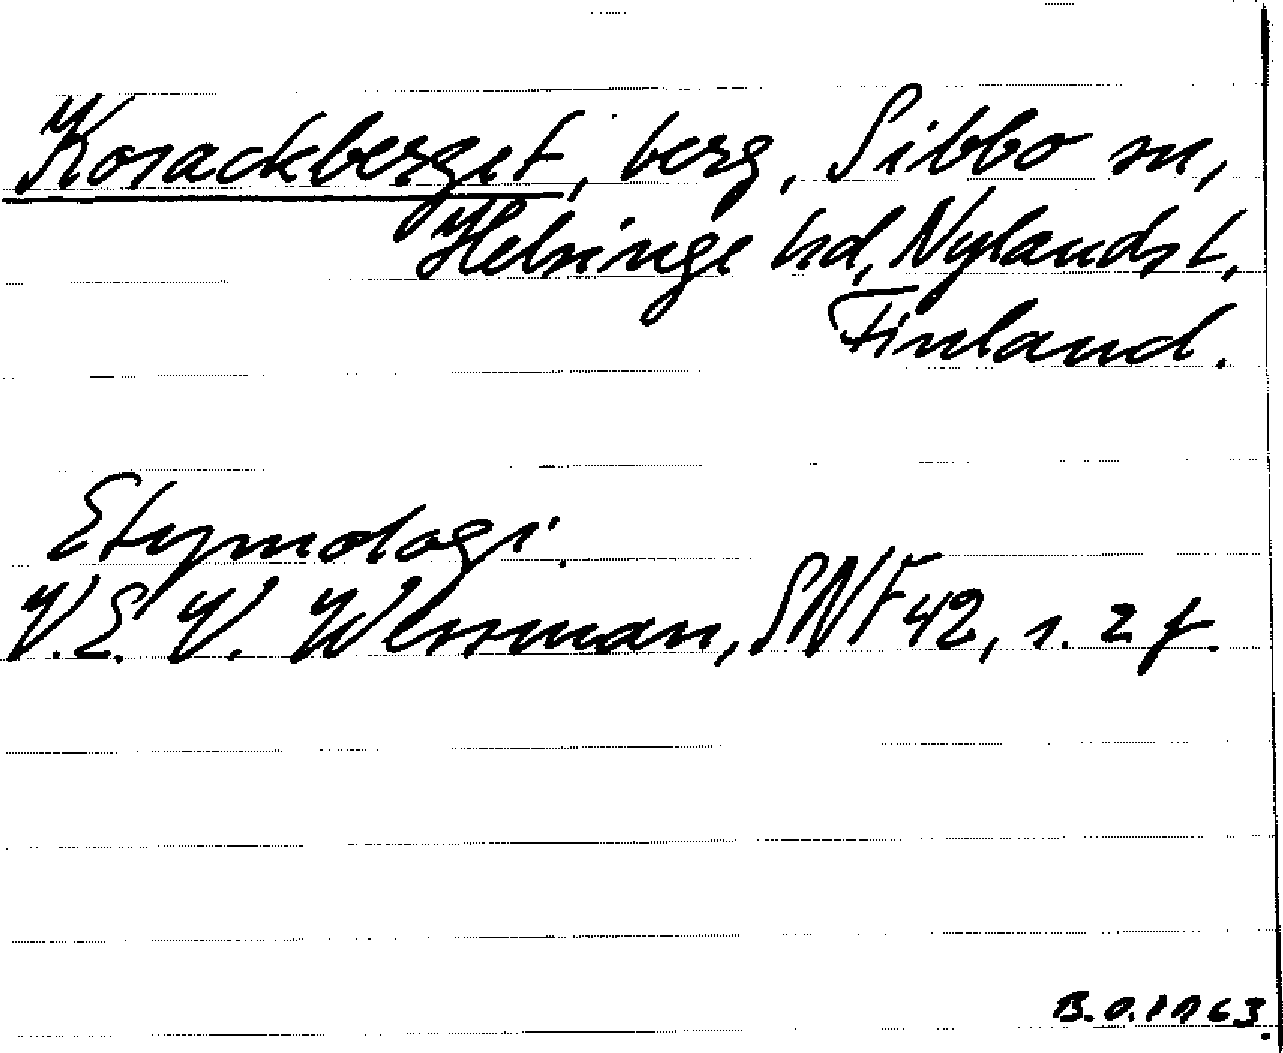 Kosackberget, berg, Sibbo sn,
Helsinge hd, Nylands l,
Finland.
Etymologi.
V.E.V. Wessman, SNF 42, s. 2 f.
B.O. 1963.